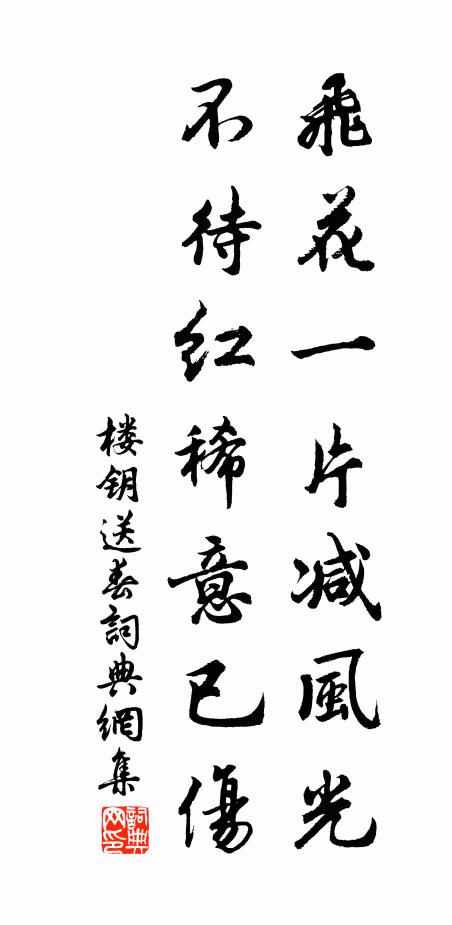 飛花一片减風光
不待红稀意已傷
楼钥送春詞典網集
詞典
网印